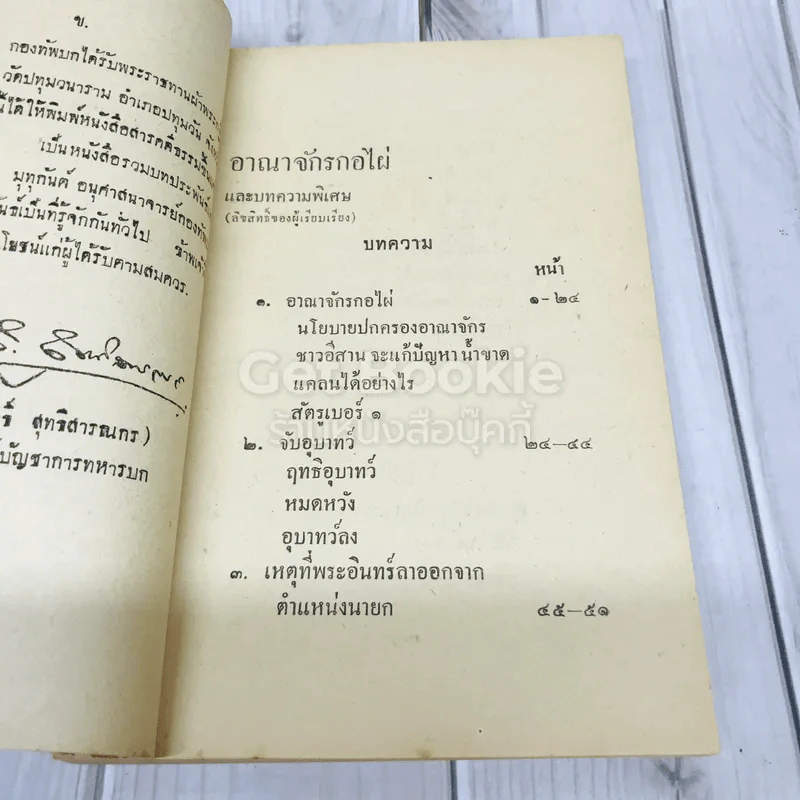 ข.
กองทัพบกได้รับพระราชทานผ้าพระ
วัดปทุมวนาราม อำเภอปทุมวัน
นี้ได้ให้พิมพ์หนังสือสารคดีธรรม
เป็นหนังสือรวมบทประพันธ์
มุทุกันต์ อนุศาสนาจารย์กองทัพ
เป็นที่รู้จักกันทั่วไป ข้าพเจ้า
โยชน์แก่ผู้ได้รับตามสมควร.
สุทธิสารณกร)
บัญชาการทหารบก
อาณาจักรกอไผ่
และบทความพิเศษ
(ลิขสิทธิ์ของผู้เรียบเรียง)
บทความ
หน้า
๑. อาณาจักรกอไผ่ ๑-๒๔
นโยบายปกครองอาณาจักร
ชาวอีสาน จะแก้ปัญหา น้ำขาด
แคลนได้อย่างไร
สัตรูเบอร์ ๑
๒. จับอุบาทว์ ๒๔—๔๔
ฤทธิอุบาทว์
หมดหวัง
อุบาทว์ลง
๓. เหตุที่พระอินทร์ลาออกจาก
ตำแหน่งนายก ๔๕—๕๑
Get Bookie
ร้านหนังสือบุ๊คกี้